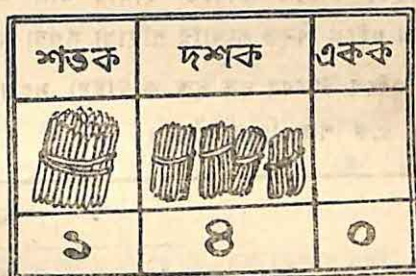 শতক দশক একক
১ ৪ ০